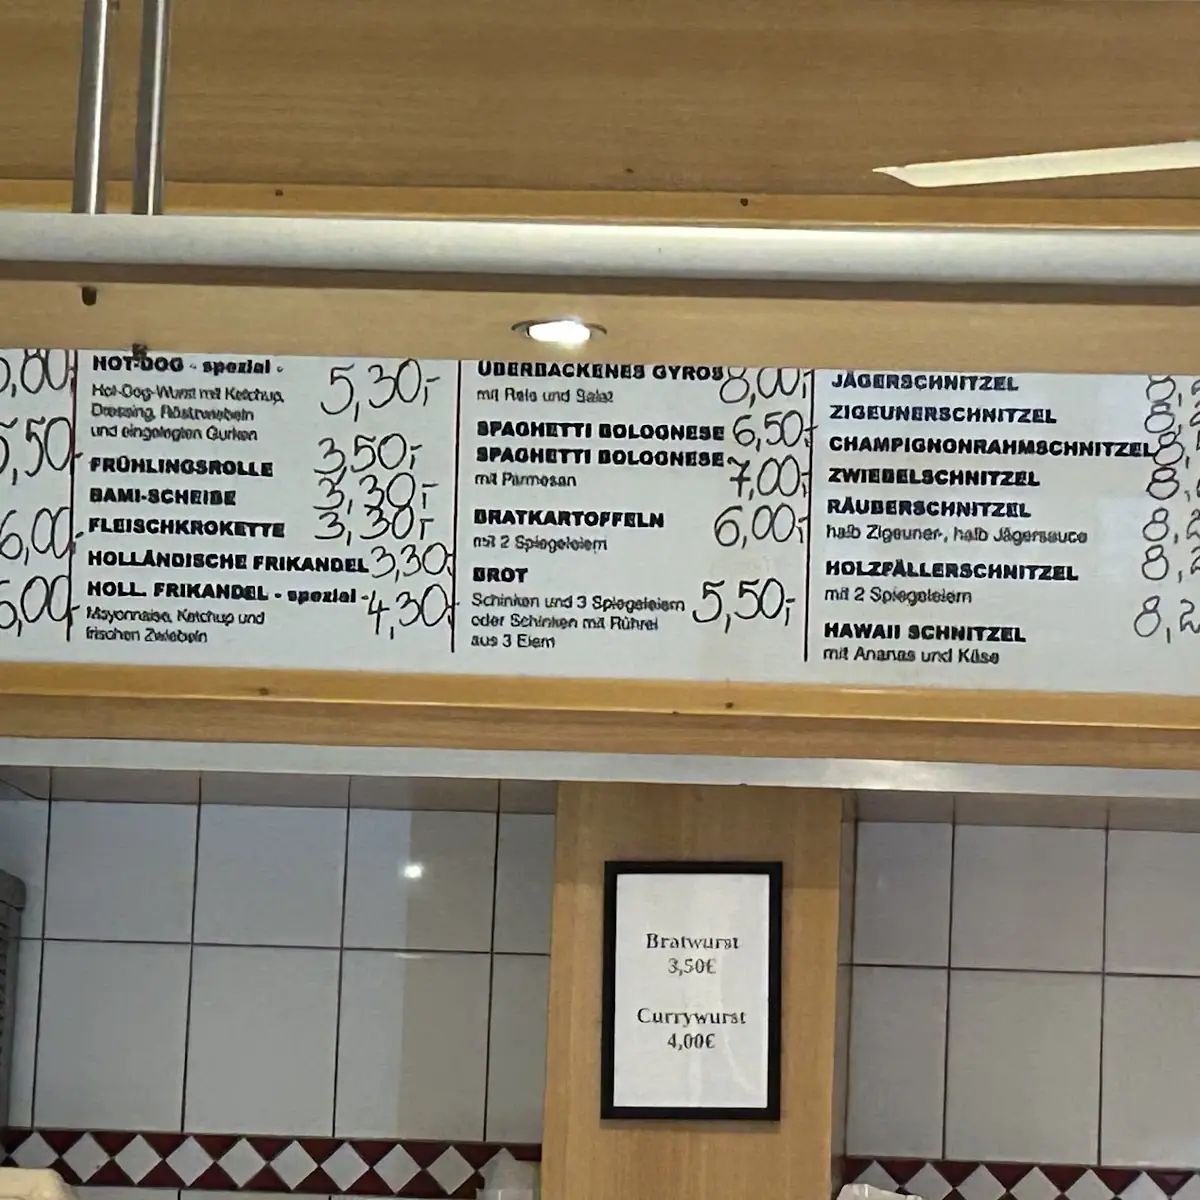 5,50
6,00,-
HOT-DOG - spezial - 5,30,-
Hot-Dog-Wurst mit Ketchup,
Dressing, Röstzwiebeln
und eingelegten Gurken
FRÜHLINGSROLLE 3,50,-
BAMI-SCHEIBE 3,30,-
FLEISCHKROKETTE 3,30,-
HOLLÄNDISCHE FRIKANDEL 3,30,-
HOLL. FRIKANDEL - spezial - 4,30,-
Mayonnaise, Ketchup und
frischen Zwiebeln
ÜBERBACKENES GYROS 8,00,-
mit Reis und Salat
SPAGHETTI BOLOGNESE 6,50,-
SPAGHETTI BOLOGNESE 7,00,-
mit Parmesan
BRATKARTOFFELN 6,00,-
mit 2 Spiegeleiern
BROT
Schinken und 3 Spiegeleiern 5,50,-
oder Schinken mit Rührei
aus 3 Eiern
JÄGERSCHNITZEL
ZIGEUNERSCHNITZEL 8,
CHAMPIGNONRAHMSCHNITZEL 8,
ZWIEBELSCHNITZEL 8,
RÄUBERSCHNITZEL
halb Zigeuner-, halb Jägersauce 8,2
HOLZFÄLLERSCHNITZEL 8,2
mit 2 Spiegeleiern
HAWAII SCHNITZEL 8,2
mit Ananas und Käse
Bratwurst
3,50€
Currywurst
4,00€